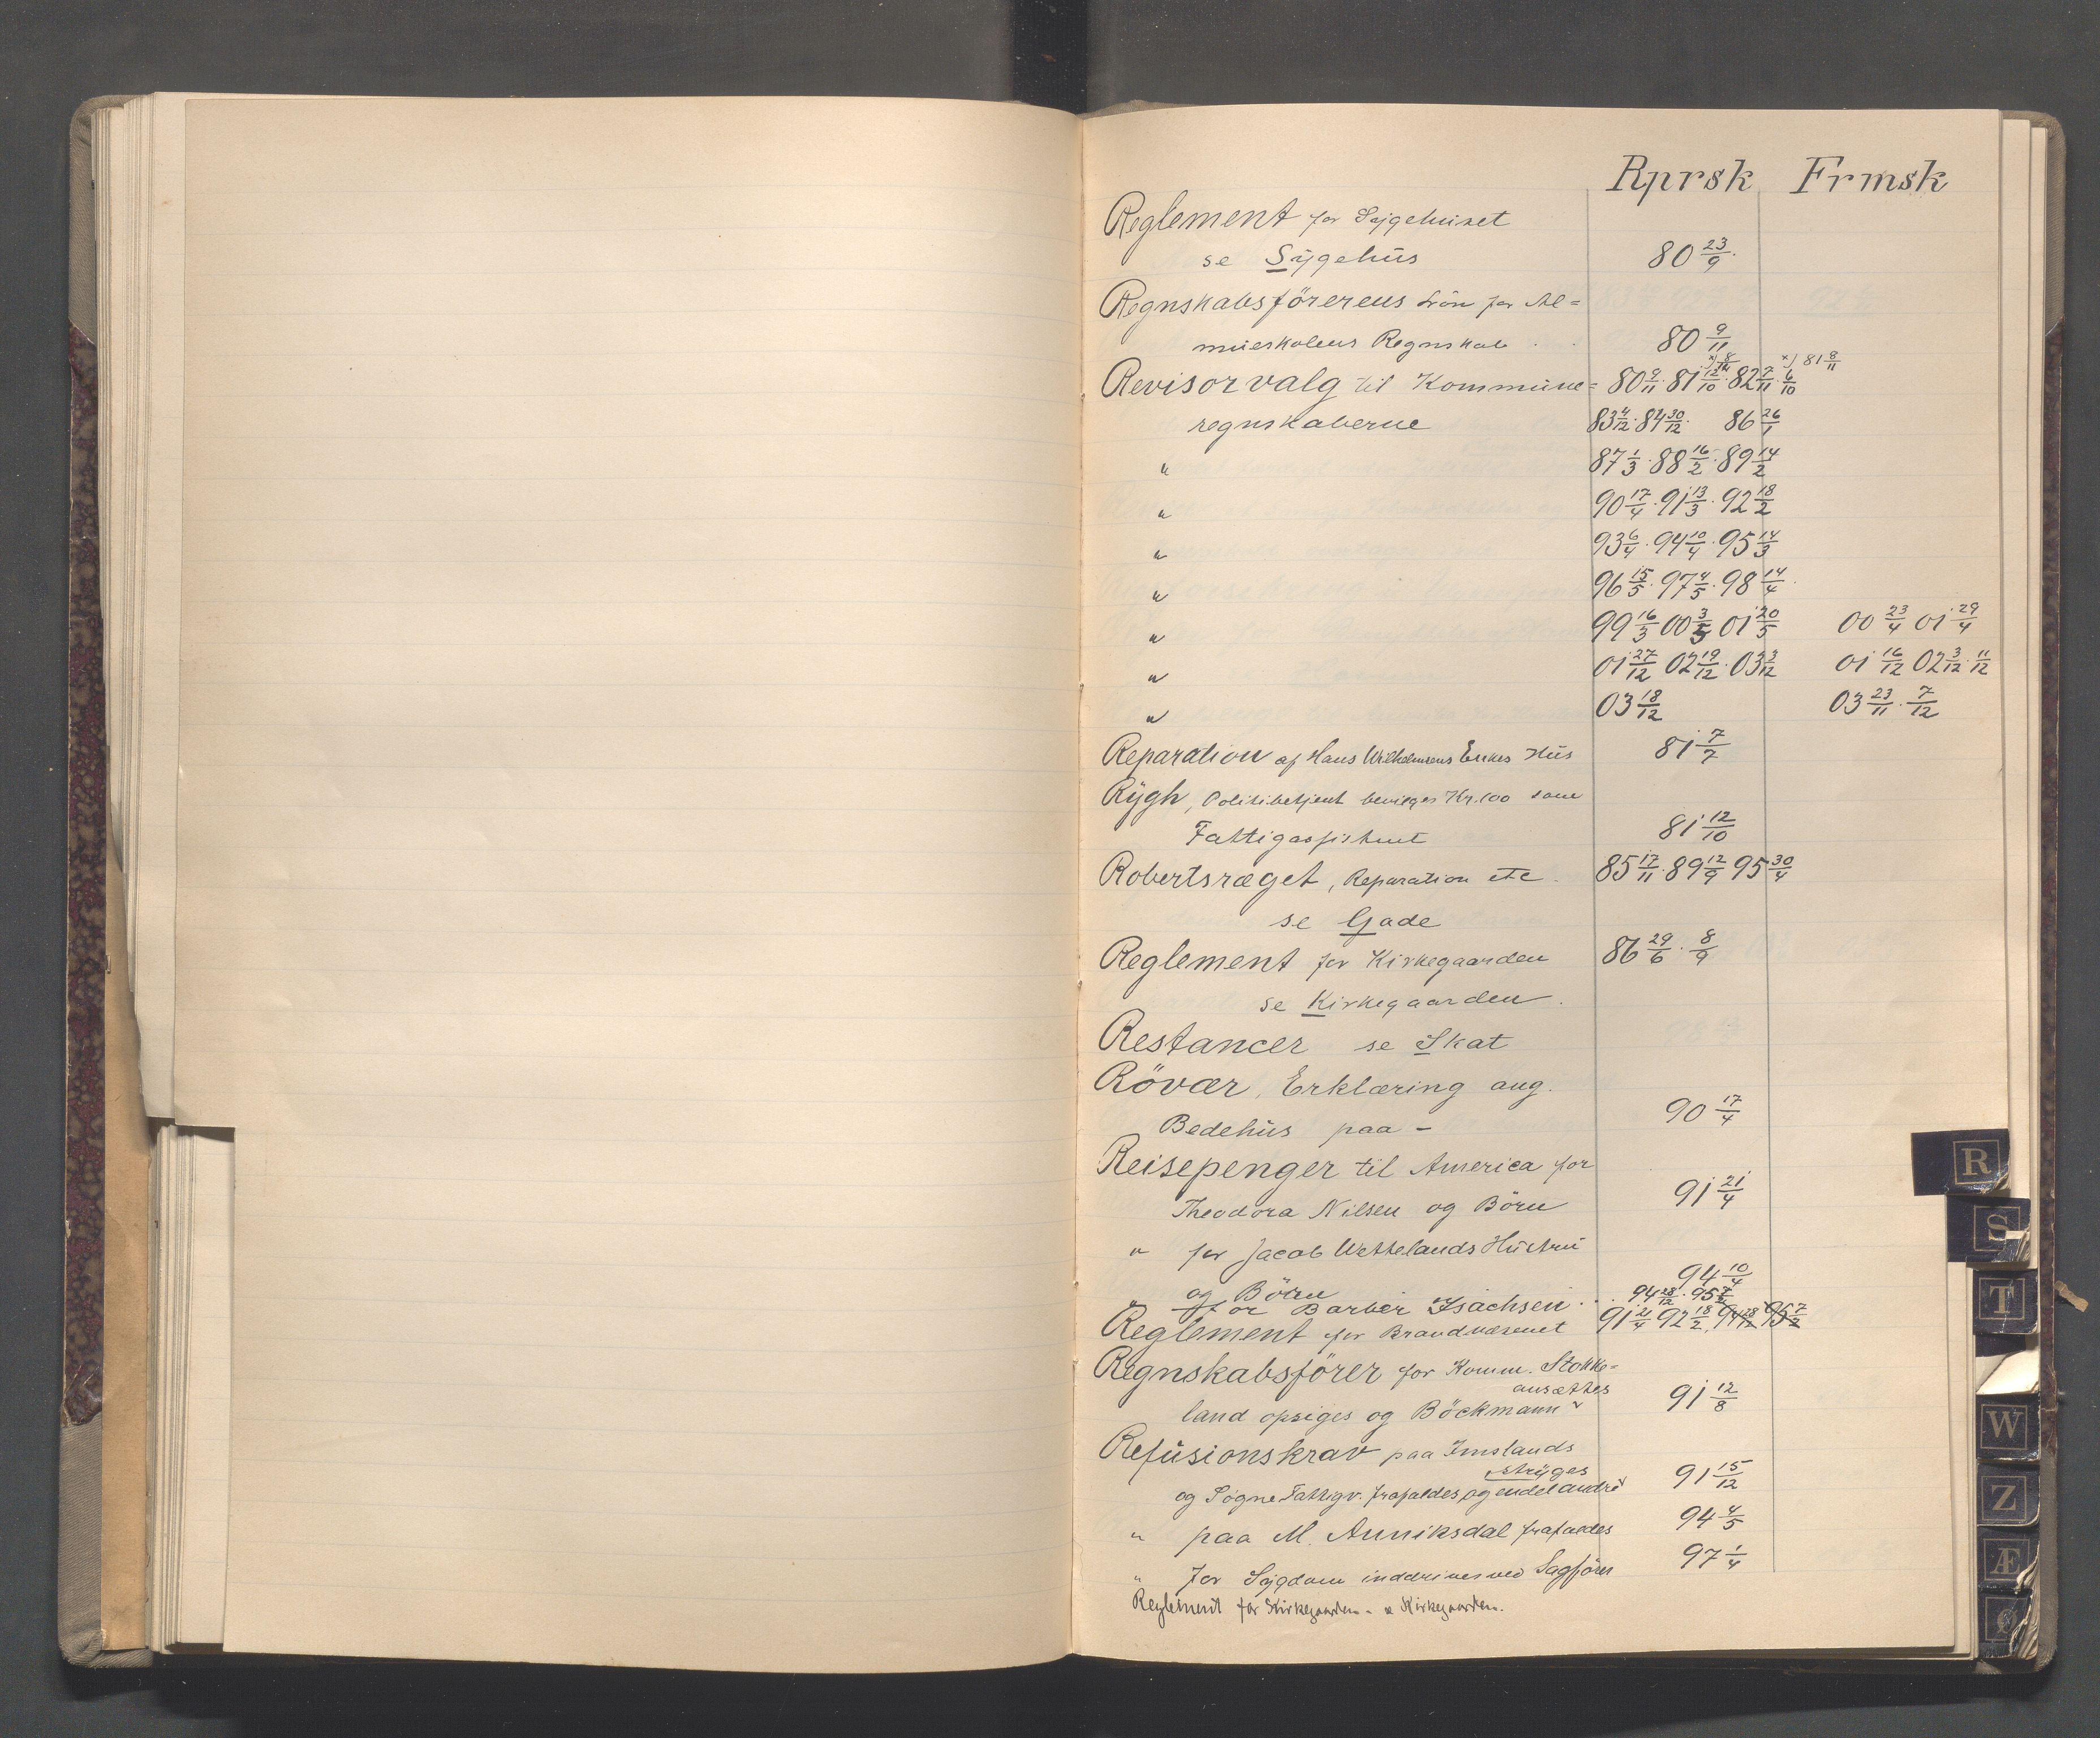 Rprsk Frmsk
Reglement for Sygehuset
se Sygehus 80 23/9
Regnskabsförerens Lön for Al=
mueskolens Regnskab . . 80 9/11
x) 8/11 x) 81 8/11
Revisorvalg til Kommune= 80 9/11 · 81 12/10 · 82 7/11 · 6/10
regnskaberne 83 4/12 · 84 30/12 · 86 26/1
" 87 1/3 · 88 16/2 · 89 14/2
" 90 17/4 · 91 13/3 · 92 18/2
" 93 6/4 · 94 10/4 · 95 14/3
" 96 15/5 · 97 4/5 · 98 14/4 ·
" 99 16/3 00 3/5 01 20/5 00 23/4 01 29/4
" 01 27/12 02 19/12 · 03 3/12 01 16/12 02 3/12 · 11/12
" 03 18/12 03 23/11 · 7/12
Reparation af Hans Wilhelmsens Enkes Hus 81 7/7
Rygh, Politibetjent bevilges Kr. 100 som
Fattigassistent 81 12/10
Robertsræget, Reparation etc. 85 17/11 · 89 12/9 95 30/4
se Gade
Reglement for Kirkegaarden 86 29/6 · 8/9
se Kirkegaarden.
Restancer se Skat
Rövær, Erklæring ang.
Bedehus paa - 90 17/4
Reisepenger til America for
Theodora Nilsen og Börn 91 21/4
" for Jacob Wettelands Hustru
og Börn 94 10/4
" for Barber Isachsen . . . 94 28/12 · 95 7/2
Reglement for Brandvæsenet 91 21/4 92 18/2 94 28/12 95 7/2
Regnskabsförer for Komm. Stokke=
ansættes
land opsiges og Böckmann 91 12/8
Refusionskrav paa Imslands
stryges
og Sogne Fattigv. frafaldes, og endel andre 91 15/12
" paa M. Anniksdal frafaldes 94 4/5
" for Sygdom inddrives ved Sagförer 97 1/4
Reglement for Kirkegaarden - se Kirkegaarden.
R
S
T
W
Z
Æ
Ø